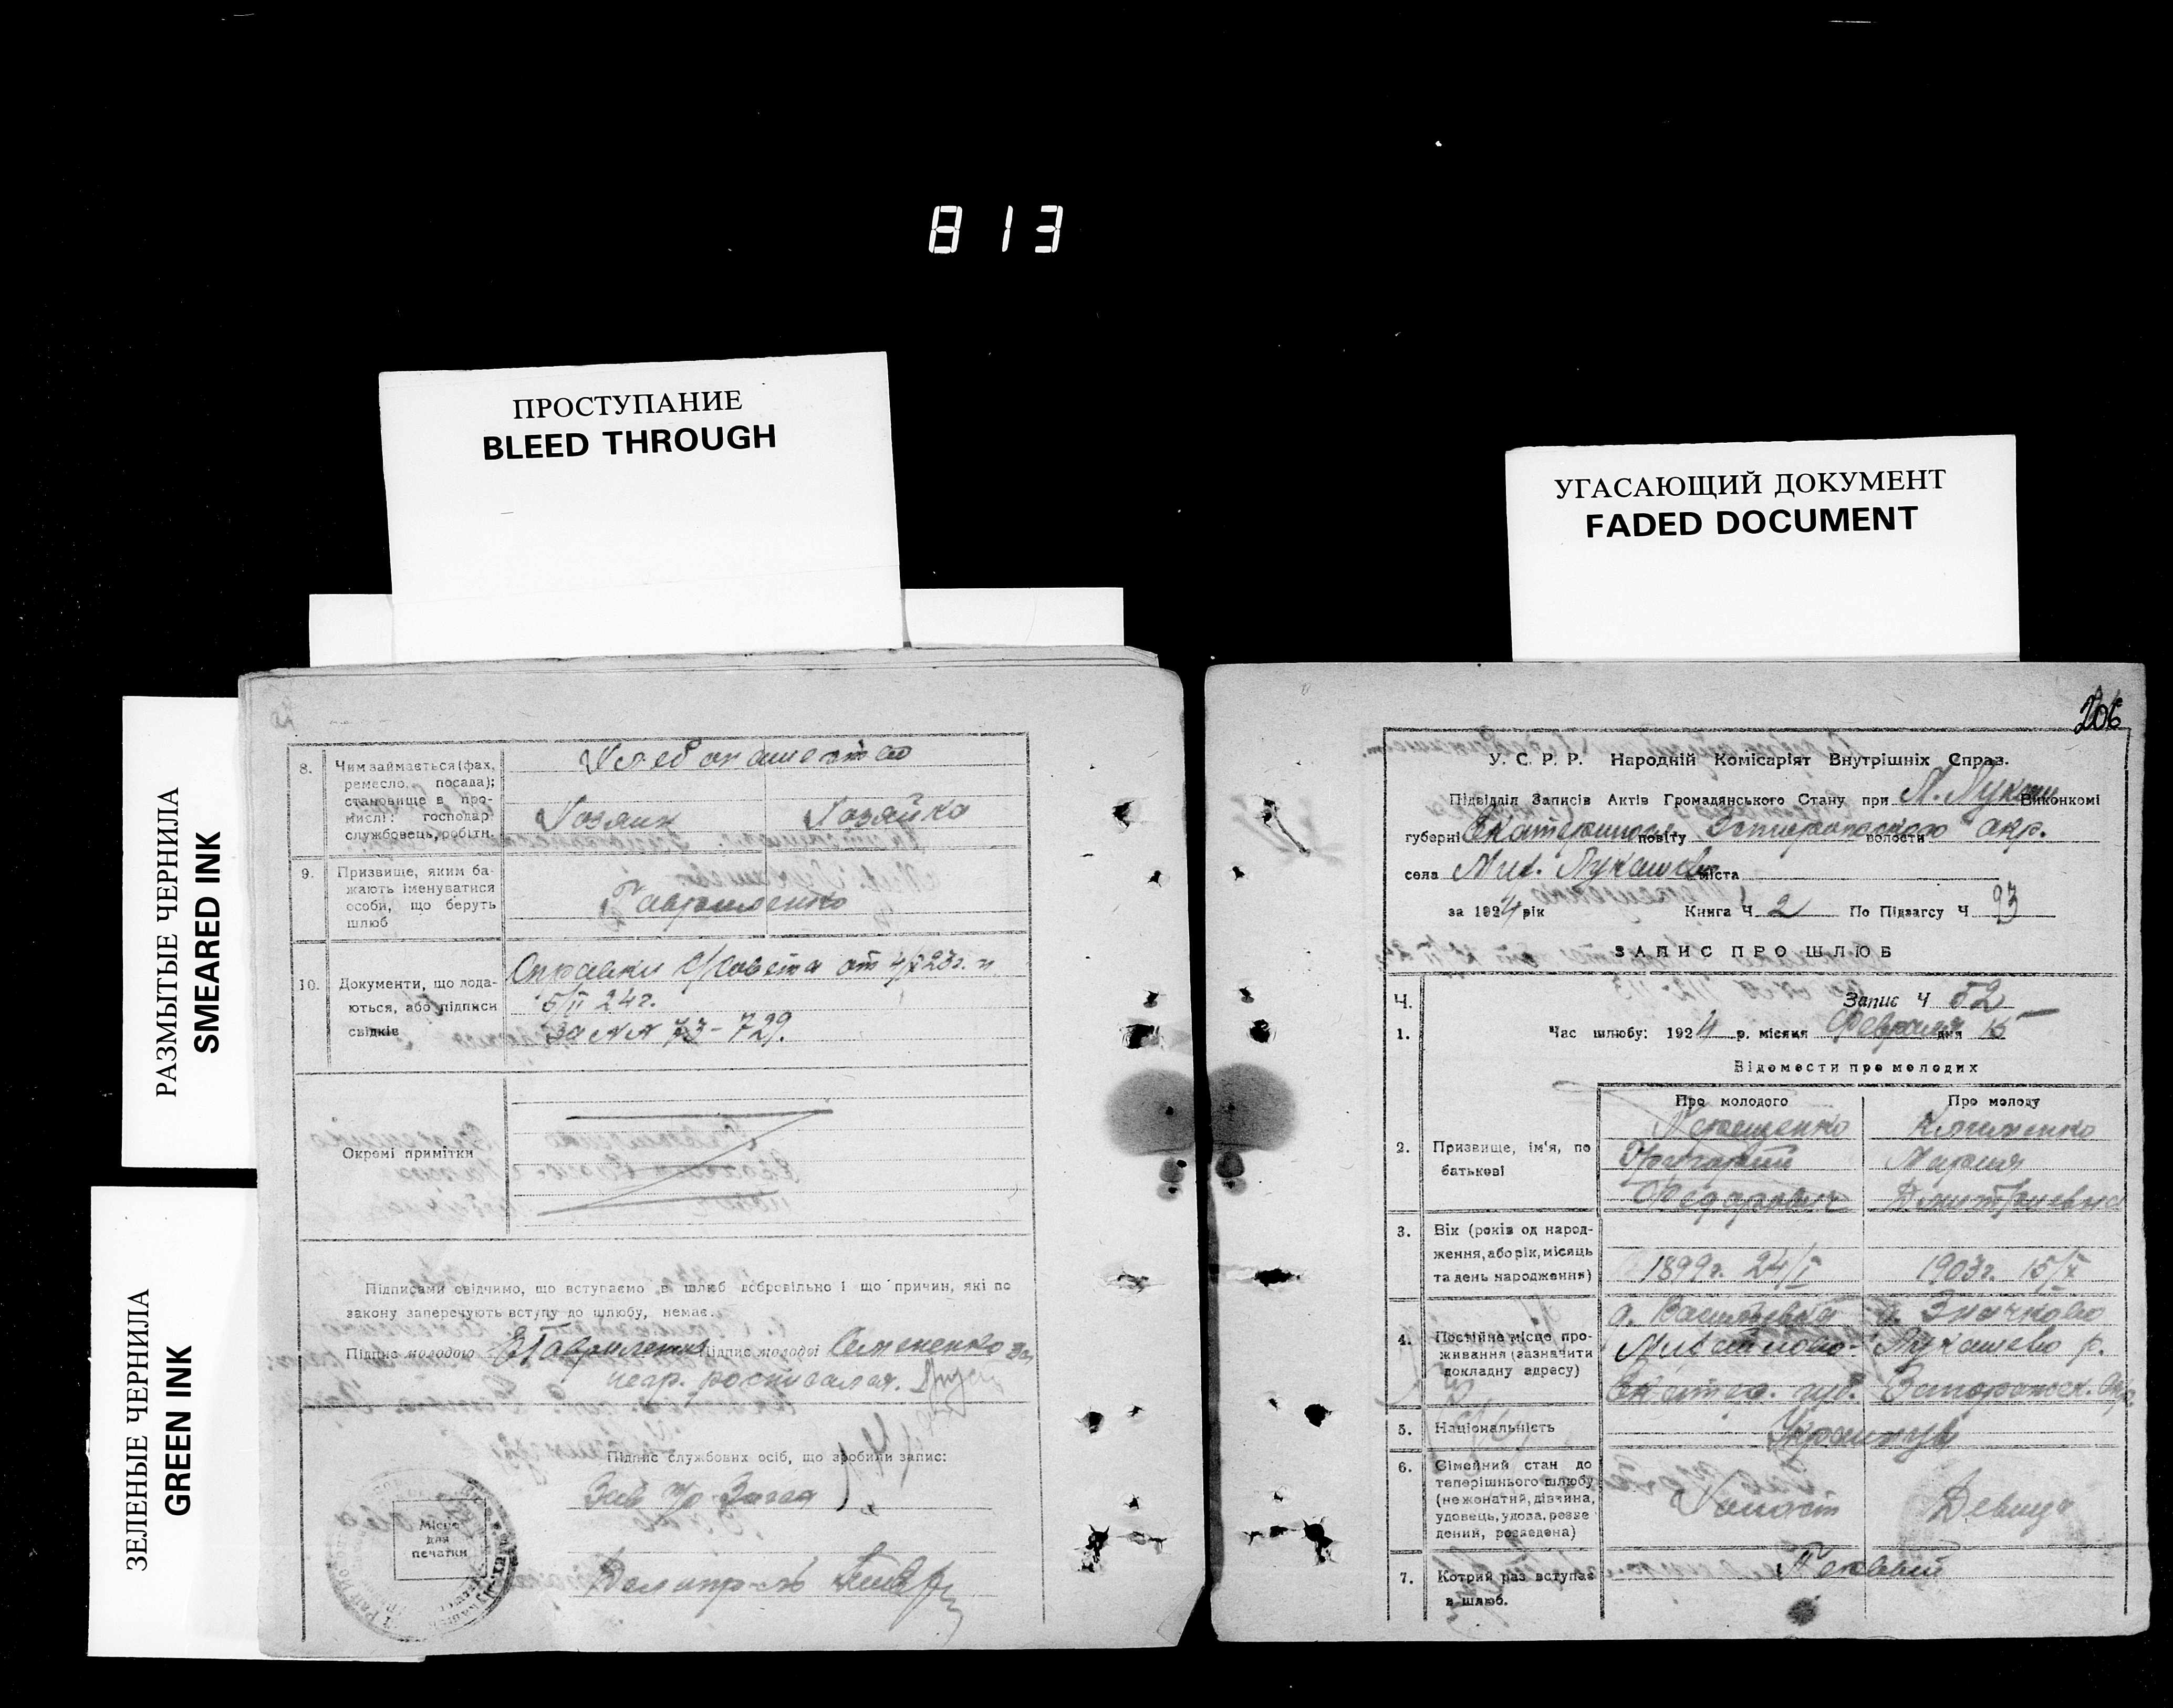 813
ПРОСТУПАНИЕ
BLEED THROUGH
УГАСАЮЩИЙ ДОКУМЕНТ
FADED DOCUMENT
РАЗМЫТЫЕ ЧЕРНИЛА
SMEARED INK
ЗЕЛЕНЫЕ ЧЕРНИЛА
GREEN INK
8. Чим займається (фах, ремесло, посада);
становище в про-
мислі: господар
службовець, робітн.
Хлебопашество
Хозяин
Хозяйка
9. Призвище, яким ба-
жають іменуватися
особи, що беруть
шлюб
Гавриленко
10. Документи, що пода-
ються, або підписи
свідків
Справки с/совета от 4/ 23г. и
5/II 24г.
За NN 73-729.
Окремі примітки
Підписами свідчимо, що вступаємо в шлюб добровільно і що причин, які по
закону заперечують вступу до шлюбу, немає.
Підпис молодого Гавриленко Підпис молодої Семененко за
негр. росписался.
Підпис службових осіб, що зробили запис:
Зав. п/о Загса
Місце
для
печатки
Делопр-ль
206
У. С. Р. Р. Народній Комісаріят Внутрішніх Справ.
Підвідділ Записів Актів Громадянського Стану при М. Лукаш Виконкомі
губерні Екатеринос. повіту Запорожского волости окр.
села Мих. Лукашево міста
за 1924 рік Книга Ч 2 По Підзагсу Ч 93
ЗАПИС ПРО ШЛЮБ
Ч. Запис Ч 52
1. Час шлюбу: 1924 р. місяця Февраля дня 15
Відомости про молодих
Про молодого
Про молоду
2. Призвище, ім'я, по
батькові
Григорий
Федорович
Клименко
Мария
Дмитриевна
3. Вік (років од народ-
ження, або рік, місяць
та день народження)
1899г. 24/I
1903г. 15/X
4. Постійне місце про-
живання (зазначити
докладну адресу)
с. Васильевка
Михайлово-
Екатер. губ.
с.
Лукашево р.
Запорожск. Окр.
5. Національність
Украинцы
6. Сімейний стан до
теперішнього шлюбу
(нежонатий, дівчина,
удовець, удова, розве
дений, розведена)
Холост
Девица
7. Котрий раз вступає
в шлюб.
Первый